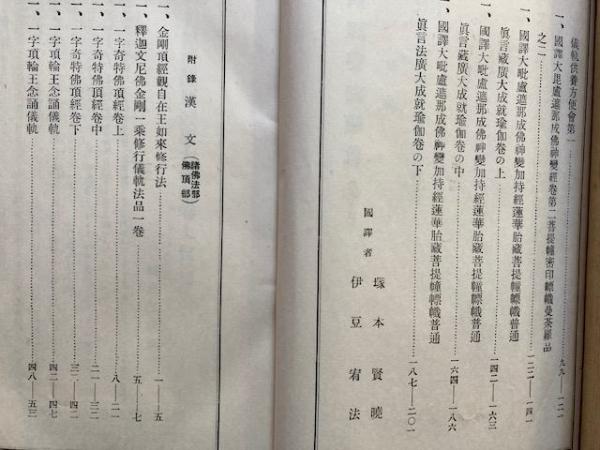 儀軌供養方便會第一
一、國譯大毘盧遮那成佛神變經卷第二菩提幢密印幖幟曼荼羅品
之二………九九—一二一
一、國譯大毗盧遮那成佛神變加持經蓮華胎藏菩提幢幖幟普通
眞言藏廣大成就瑜伽卷の上………一二二—一四一
一、國譯大毗盧遮那成佛神變加持經蓮華胎藏菩提幢幖幟普通
眞言藏廣大成就瑜伽卷の中………一四二—一六三
一、國譯大毗盧遮那成佛神變加持經蓮華胎藏菩提幢幖幟普通
眞言法廣大成就瑜伽卷の下………一六四—一八六
一八七—二〇一
國譯者
塚本賢曉
伊豆宥法
附錄漢文(諸佛法部佛頂部)
一、金剛頂經觀自在王如來修行法………一—五
一、釋迦文尼佛金剛一乘修行儀軌法品一卷………五—七
一、一字奇特佛頂經卷上………八—二一
一、一字奇特佛頂經卷中………二一—三二
一、一字奇特佛頂經卷下………三二—四二
一、一字頂輪王念誦儀軌………四二—四七
一、一字頂輪王念誦儀軌………四八—五三